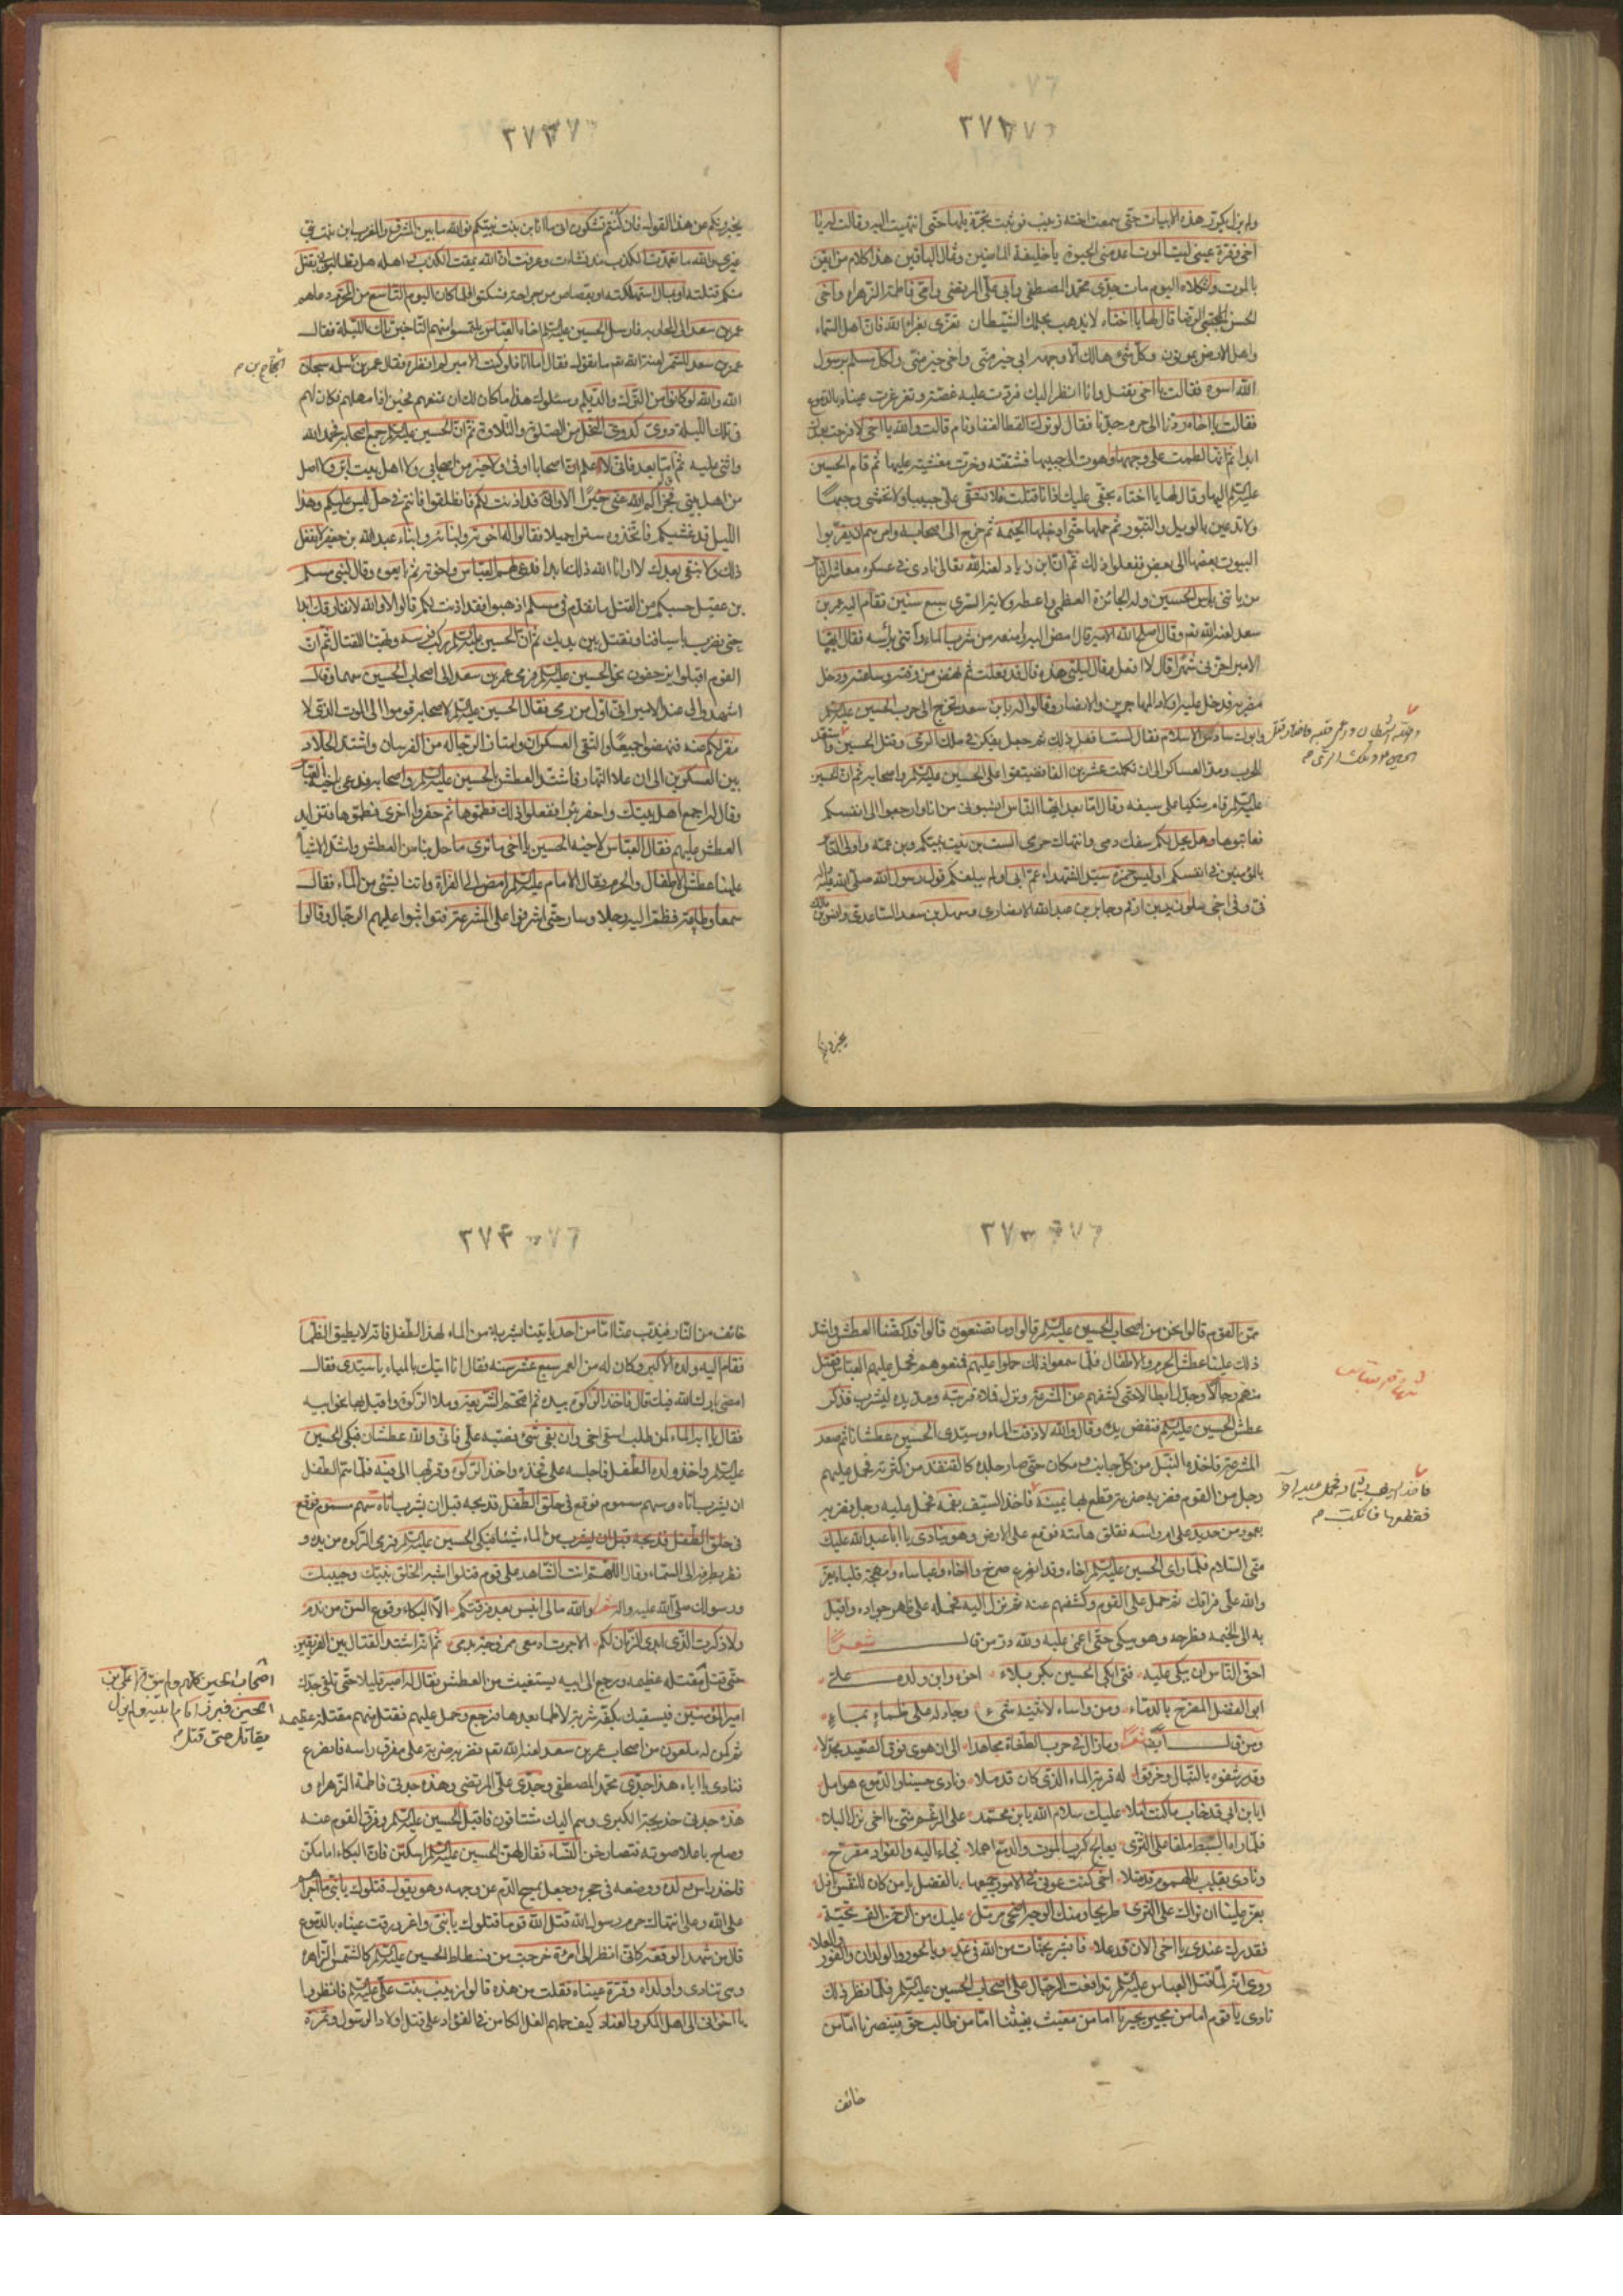 ولم يزل يكرر هذه الابيات حتى سمعت اخته زينب فوثبت تجر ذيلها حتى انتهيت اليه وقالت له يا
اخى وقرة عينى ليت الموت اعدمنى الحيوة يا خليفة الماضين وثمال الباقين هذا كلام من ايقن
بالموت واثكلاه اليوم مات جدى محمد المصطفى وابى على المرتضى وامى فاطمة الزهراء واخى
الحسن المجتبى الرضا قال لها يا اختاه لا يذهب بحلمك الشيطان تعزى بعزاء الله فان اهل السماء
واهل الارض يموتون وكل شئ هالك الا وجهه ابى خير منى واخى خير منى ولكل مسلم برسول
الله اسوة فقالت يا اخى تقتل وانا انظر اليك فردت عليه غصته وتغرغرت عيناه بالدموع
فقالت يا اخاه ردنا الى حرم جدنا فقال لو ترك القطا لغفا ونام قالت والله يا اخى لا فرحت بعدك
ابدا ثم انها لطمت على وجهها وهوت الى جيبها فشقته وخرت مغشية عليها ثم قام الحسين
عليه السلام اليها وقال لها يا اختاه بحقى عليك اذا انا قتلت فلا تشقى على جيبا ولا تخمشى وجها
ولا تدعين بالويل والثبور ثم حملها حتى ادخلها الخيمة ثم خرج الى اصحابه وامرهم ان يقربوا
البيوت بعضها الى بعض ففعلوا ذلك ثم ان ابن زياد لعنه الله تعالى نادى فى عسكره معاشر الناس
من ياتنى براس الحسين وله الجائزة العظمى واعطه ولاية الرى سبع سنين فقام اليه عمر بن
سعد لعنه الله تعالى وقال اصلح الله الامير قال امض اليه وامنعه من شرب الماء وأتنى برأسه فقال ايها
الامير اخرنى شهرا قال لا افعل فقال ليلتى هذه قال قد فعلت ثم نهض من وقته وساعته ودخل
مضربه فدخل عليه اولاد المهاجرين والانصار وقالوا له يابن سعد تخرج الى حرب الحسين عليه السلام
وابوك سادس الاسلام فقال لست افعل ذلك ثم جعل يفكر فى ملك الرى وقتل الحسين
الحرب ومعه العساكر الى ان تكملت عشرين الفا فضيقوا على الحسين عليه السلام واصحابه ثم ان الحسين
عليه السلام قام متكيا على سيفه وقال اما بعد ايها الناس انسبونى من انا وارجعوا الى انفسكم
فعاتبوها وهل يحل لكم سفك دمى وانتهاك حرمى الست بن بنت نبيكم وبن عمه واولى الناس
بالمؤمنين من انفسكم اوليس حمزة سيد الشهداء عم ابى اولم يبلغكم قول رسول الله صلى الله عليه واله
فى وفى اخى سلوا زيد بن ارقم وجابر بن عبد الله الانصارى وسهل بن سعد الساعدى وانس بن مالك
يخبرونكم
يخبرونكم عن هذا القول فان كنتم تشكون انى ما انا ابن بنت نبيكم فوالله ما بين المشرق والمغرب ابن بنت نبى
غيرى والله ما تعمدت الكذب منذ نشأت وعرفت ان الله يمقت الكذب واهله هل تطالبونى بقتل
منكم قتلته او بمال استهلكته او بقصاص من جراحة فسكتوا فلما كان اليوم التاسع من المحرم دعاهم
عمر بن سعد الى المحاربة فارسل الحسين عليه السلام اخاه العباس يلتمس منهم التاخير تلك الليلة فقال
عمر بن سعد للشمر لعنه الله تعالى ما تقول فقال اما انا فلو كنت الامير لم انظره فقال عمر بن سلمه سبحان
الحجاج بن م
الله والله لو كانوا من الترك والديلم وسئلوك هذا ما كان لك ان تمنعهم فحينئذ امهلهم فكان لهم
فى تلك الليلة دوى كدوى النحل من الصلوة والتلاوة ثم ان الحسين عليه السلام جمع اصحابه فحمد الله
واثنى عليه ثم قال اما بعد فانى لا اعلم اصحابا اوفى ولا خير من اصحابى ولا اهل بيت ابر واصل
من اهل بيتى فجزاكم الله عنى خيرا الا وانى قد اذنت لكم فانطلقوا فانتم فى حل ليس عليكم وهذا
الليل قد غشيكم فاتخذوه سترا جميلا فقالوا له اخوته وابناؤه وابناء عبد الله بن جعفر لا نفعل
ذلك ولا نبقى بعدك لا ارانا الله ذلك ابدا فدعى لهم العباس واخوته ثم تابعوه وقال لبنى مسلم
بن عقيل حسبكم من القتل ما تقدم فى مسلم اذهبوا فقد اذنت لكم قالوا لا والله لا نفارقك ابدا
حتى نضرب باسيافنا ونقتل بين يديك ثم ان الحسين عليه السلام ركب فرسه وتهيأ للقتال ثم ان
القوم اقبلوا يزحفون نحو الحسين عليه السلام فرمى عمر بن سعد الى اصحاب الحسين سهما وقال
اشهدوا لى عند الامير انى اول من رمى فقال الحسين عليه السلام لاصحابه قوموا الى الموت الذى لا
مفر لكم منه فنهضوا جميعا والتقى العسكران وامتاز الرجاله من الفرسان واشتد الجلاد
بين العسكرين الى ان علا النهار فاشتد العطش بالحسين عليه السلام واصحابه فدعى باخيه العباس
وقال له اجمع اهل بيتك واحفر بئرا ففعلوا ذلك فطموها ثم حفروا اخرى فطموها فتزايد
العطش عليهم فقال العباس لاخيه الحسين يا اخى ما ترى ما حل بنا من العطش واشد الاشياء
علينا عطش الاطفال والحرم فقال الامام عليه السلام امض الى الفراة واتنا بشئ من الماء فقال
سمعا وطاعة فظم اليه رجالا وسار حتى اشرفوا على المشرعة فتواثبوا عليهم الرجال وقالوا
ممن القوم قالوا نحن من اصحاب الحسين عليه السلام قالوا وما تصنعون قالوا قد كضنا العطش واشد
ذلك علينا عطش الحرم والاطفال فلما سمعوا ذلك حملوا عليهم فمنعوهم فحمل عليهم العباس فقتل
منهم رجالا وجدل ابطالا حتى كشفهم عن المشرعة ونزل فملاء قربته ومد يده ليشرب فذكر
عطش الحسين عليه السلام فنفض يده وقال والله لا ذقت الماء وسيدى الحسين عطشانا ثم صعد
المشرعة فاخذه النبل من كل جانب ومكان حتى صار جلده كالقنفذ من كثرته فحمل عليهم
رجل من القوم فضربه ضربة قطع بها يمينه فاخذ السيف بفمه فحمل عليه رجل فضربه
فقطعها فانكبت م
بعمود من حديد على ام راسه ففلق هامته فوقع على الارض وهو ينادى يا ابا عبد الله عليك
منى السلام فلما راى الحسين عليه السلام اخاه وقد انصرع صرخ وا اخاه واعباساه وا مهجة قلباه يعز
والله على فراقك ثم حمل على القوم وكشفهم عنه ثم نزل اليه فحمله على ظهر جواده واقبل
به الى الخيمة وطرحه وهو يبكى حتى اغمى عليه ولله در من قال شعرا
احق الناس ان يبكى عليه فتى ابكى الحسين بكربلاء اخوه وابن والده على
ابى الفضل المضرج بالدماء ومن واساه لا يثنيه شئ وجاد له على ظماء بماء
ومن قال ايضا شعرا وما زال فى حرب الطغاة مجاهدا الى ان هوى فوق الصعيد مجدلا
وقد رشقوه بالنبال وخرقوا له قربة الماء الذى كان قد ملا ونادى حسينا والدموع هوامل
ايا بن ابى قد خاب ما كنت املا عليك سلام الله يابن محمد على الرغم منى يا اخى نزل البلا
فلما راه السبط ملقا على الثرى يعالج كرب الموت والدمع اهملا فجاء اليه والفؤاد مقرح
ونادى بقلب بالهموم قد امتلا اخى كنت عونى فى الامور جميعها ابا الفضل يا من كان للنفس باذلا
يعز علينا ان نراك على الثرى طريحا ومنك الوجه اضحى مرملا عليك من الرحمن الف تحية
فقدرك عندى يا اخى الان قد علا فابشر بجنات من الله فى غد وبالحور والولدان والفوز والعلا
روى انه لما قتل العباس عليه السلام تدافعت الرجال على اصحاب الحسين عليه السلام فلما نظر ذلك
نادى يا قوم اما من مجير يجيرنا اما من مغيث يغيثنا اما من طالب حق فينصرنا اما من
خائف
خائف من النار فيذب عنا اما من احد ياتينا بشربة من الماء لهذا الطفل فانه لا يطيق الظما
فقام اليه ولده الاكبر وكان له من العمر سبع عشر سنه فقال انا آتيك بالماء يا سيدى فقال
امض بارك الله فيك قال فاخذ الركوة بيده ثم اقتحم الشريعة وملا الركوة واقبل بها نحو ابيه
فقال يا ابه الماء لمن طلب اسق اخى وان بقى شئ فصبه على فانى والله عطشان فبكى الحسين
عليه السلام واخذ ولده الطفل فاجلسه على فخذه واخذ الركوة وقربها الى فيه فلما هم الطفل
ان يشرب اتاه سهم مسموم فوقع فى حلق الطفل فذبحه قبل ان يشرب
من الماء شيئا فبكى الحسين عليه السلام ورمى الركوة من يده و
نظر بطرفه الى السماء وقال اللهم انت الشاهد على قوم قتلوا اشبه الخلق بنبيك وحبيبك
ورسولك صلى الله عليه واله شعرا والله مالى انيس بعد فرقتكم الا البكاء وقرع السن من ندم
ولا ذكرت الذى ابدى الزمان لكم الا جرت ادمعى ممزوجة بدمى ثم انه اشتد القتال بين الفريقين
حتى قتل مقتله عظيمه ورجع الى ابيه يستغيث من العطش فقال له اصبر قليلا حتى تلقى جدك
امير المؤمنين فيسقيك بكفه شربة لا ظما بعدها فرجع وحمل عليهم فقتل منهم مقتلة عظيمه
يقاتل حتى قتل م
ثم كمن له ملعون من اصحاب عمر بن سعد لعنه الله تعالى فضربه ضربة على مفرق راسه فانصرع
فنادى يا اباه هذا جدى محمد المصطفى وجدى على المرتضى وهذه جدتى فاطمة الزهراء و
هذه جدتى خديجة الكبرى وهم اليك مشتاقون فاقبل الحسين عليه السلام وفرق القوم عنه
وصاح باعلا صوته فتصارخن النساء فقال لهن الحسين عليه السلام اسكتن فان البكاء امامكن
فاخذ راس ولده ووضعه فى حجره وجعل يمسح الدم عن وجهه وهو يقول قتلوك يا بنى ما اجراهم
على الله وعلى انتهاك حرم رسول الله قتل الله قوما قتلوك يا بنى واغرورقت عيناه بالدموع
قال من شهد الوقعة كانى انظر الى امرأة خرجت من فسطاط الحسين عليه السلام كالشمس الزاهرة
وهى تنادى واولداه وقرة عيناه فقلت من هذه قالوا زينب بنت على عليه السلام فانظروا
يا اخوانى الى اهل المكر والعناد كيف حملهم الغل الكامن فى الفؤاد على قتل اولاد الرسول وثمرة